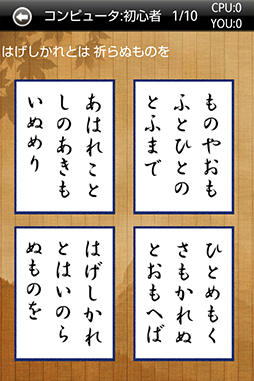 コンピュータ:初心者 1/10
CPU:0
YOU:0
はげしかれとは 祈らぬものを
ものやおも
ふとひとの
とふまで
あはれこと
しのあきも
いぬめり
ひとめもく
さもかれぬ
とおもへば
はげしかれ
とはいのら
ぬものを